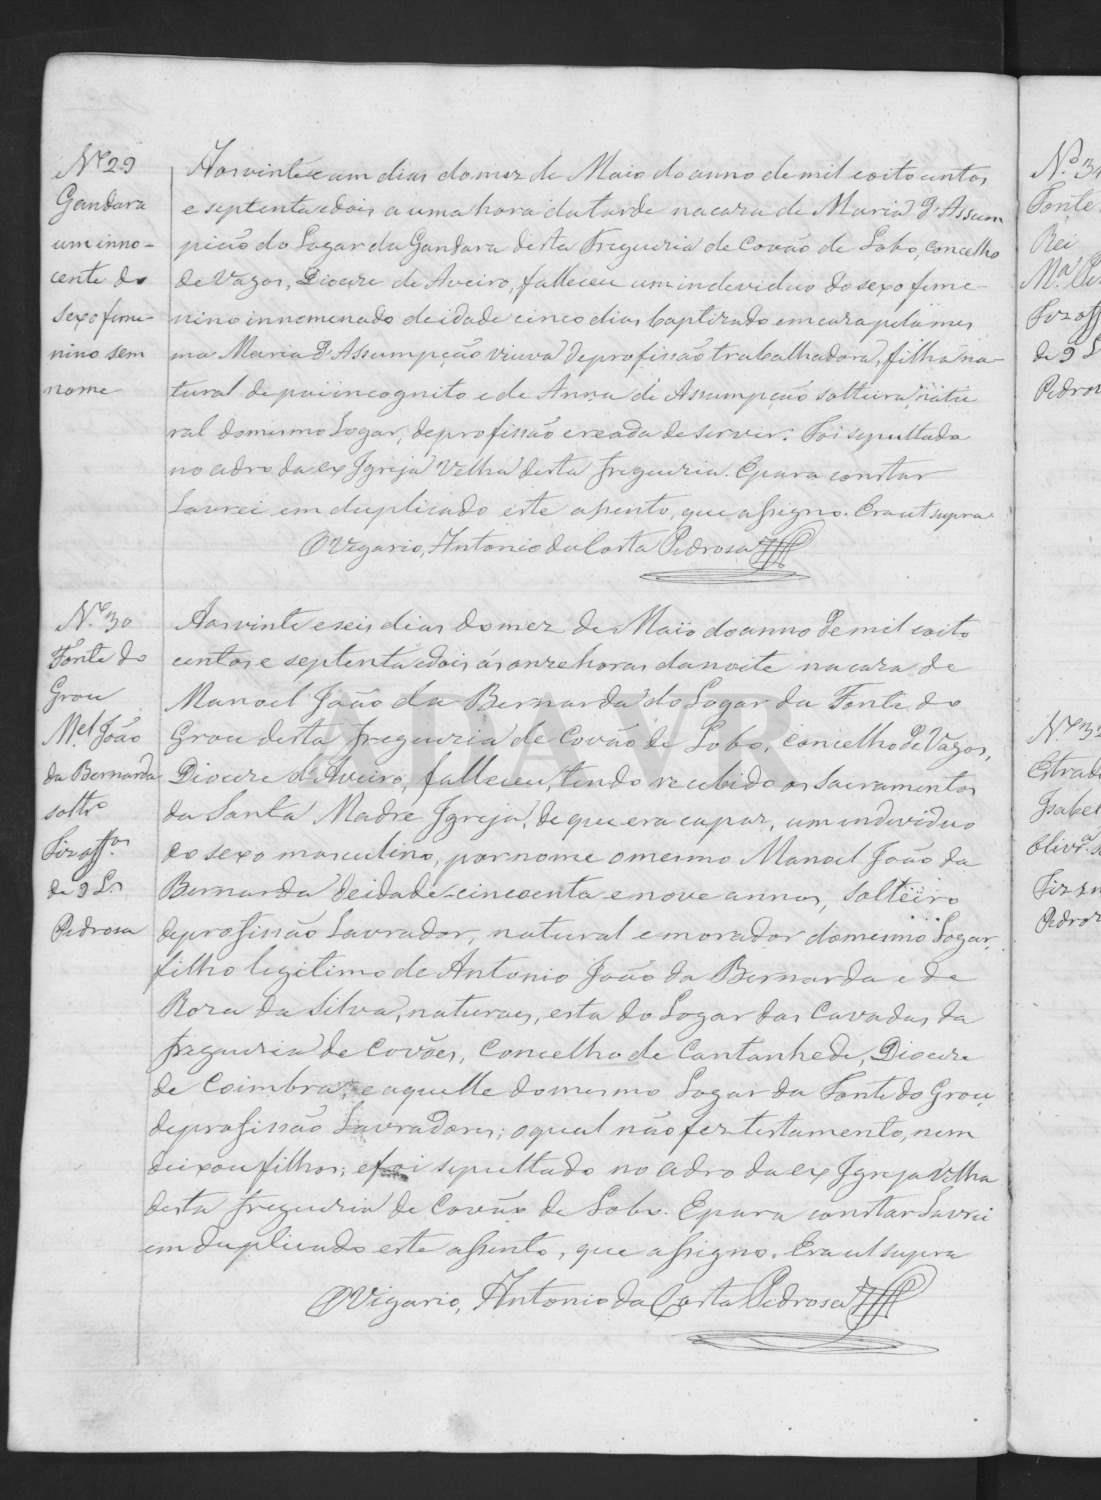 Nº 29
Gandara
um inno-
cente do
sexo femi-
nino sem
nome
Aos vinte e um dias do mez de Maio do anno de mil oito centos
e septenta e dois a uma hora da tarde na caza de Maria d'Assum
pção do Logar da Gandara desta Freguezia de Covão de Lobo, concelho
de Vagos, Diocese de Aveiro, falleceu um individuo do sexo feme-
nino innomenado de idade cinco dias baptizado em caza pela mes
ma Maria d'Assumpção viuva de profissão trabalhadora, filha na-
tural de pai incognito e de Anna d'Assumpção solteira natu
ral do mesmo Logar, de profissão creada de servir. Foi sepultado
no adro da ex Igreja Velha desta freguezia. E para constar
Lavrei em duplicado este assento, que assigno. Era ut supra
O Vigario, Antonio da Costa Pedrosa
Nº 30
Fonte do
Grou
Mel João
da Bernarda
soltro
Fiz offos
de 9 Ls
Pedrosa
Aos vinte e seis dias do mez de Maio do anno de mil oito
centos e septenta e dois ás onze horas da noite na caza de
Manoel João da Bernarda do Logar da Fonte do
Grou desta freguezia de Covão de Lobo, concelho de Vagos,
Diocese d'Aveiro, falleceu, tendo recebido os Sacramentos
da Santa Madre Igreja, de que era capaz, um individuo
do sexo masculino, por nome o mesmo Manoel João da
Bernarda de idade cincoenta e nove annos, solteiro
de profissão Lavrador, natural e morador do mesmo Logar,
filho legitimo de Antonio João da Bernarda e de
Roza da Silva, naturaes, esta do Logar das Cavadas da
freguezia de Covões, Concelho de Cantanhede, Diocese
de Coimbra, e aquelle do mesmo Logar da Fonte do Grou,
de profissão Lavradores; o qual não fez testamento, nem
deixou filhos; e foi sepultado no adro da ex Igreja Velha
desta freguezia de Covão de Lobo. E para constar Lavrei
em duplicado este assento, que assigno. Era ut supra
O Vigario, Antonio da Costa Pedrosa
ADAVR
Nº 31
Fonte
Rei
Fiz off
de 9 L
Nº 32
Estrada
Isabel